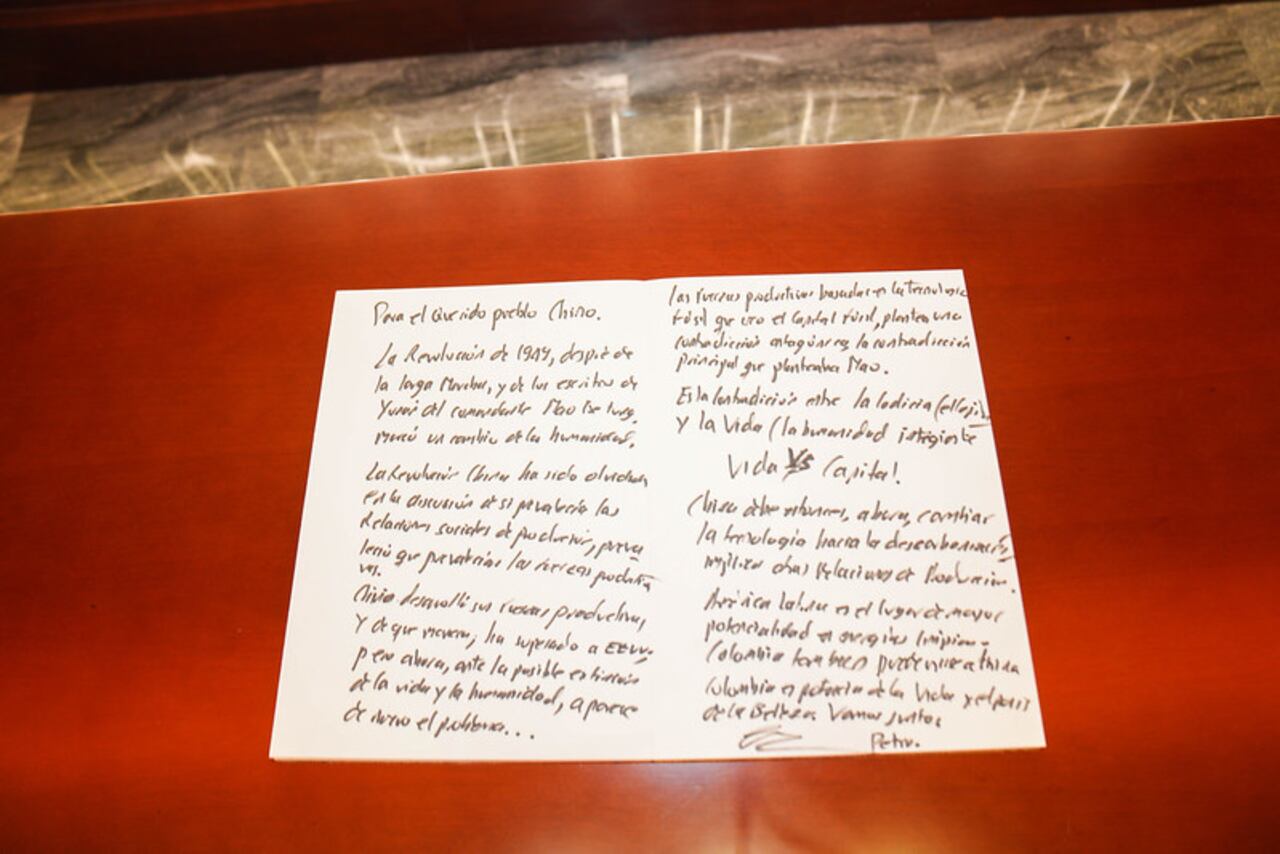 Para el querido pueblo Chino.
La Revolución de 1949, después de
la larga Marcha, y de los escritos de
Yunan del comandante Mao Tse tung,
marcó un cambio de la humanidad.
La Revolución China ha sido
en la discusión de si prevalecía las
Relaciones sociales de producción, preva
leció que prevalecían las fuerzas producti
vas.
China desarolló sus fuerzas productivas,
y de que manera, ha superado a EEUU,
pero ahora, ante la posible extinción
de la vida y la humanidad, aparece
de nuevo el problema...
las fuerzas productivas basadas en la tecnología
fósil que uso el Capital fósil, plantea una
contradicción antagónica, la contradicción
principal que planteaba Mao.
Es la contradicción entre la codicia
y la Vida (la humanidad
Vida VS Capital.
China debe entonces, ahora, cambiar
la tecnología hacia la descarbonación,
otras Relaciones de Producción.
América latina es el lugar de mayor
potencialidad en energías limpias.
Colombia puede a China
Colombia es potencia de la Vida y el país
de la Belleza Vamos juntos
Petro.